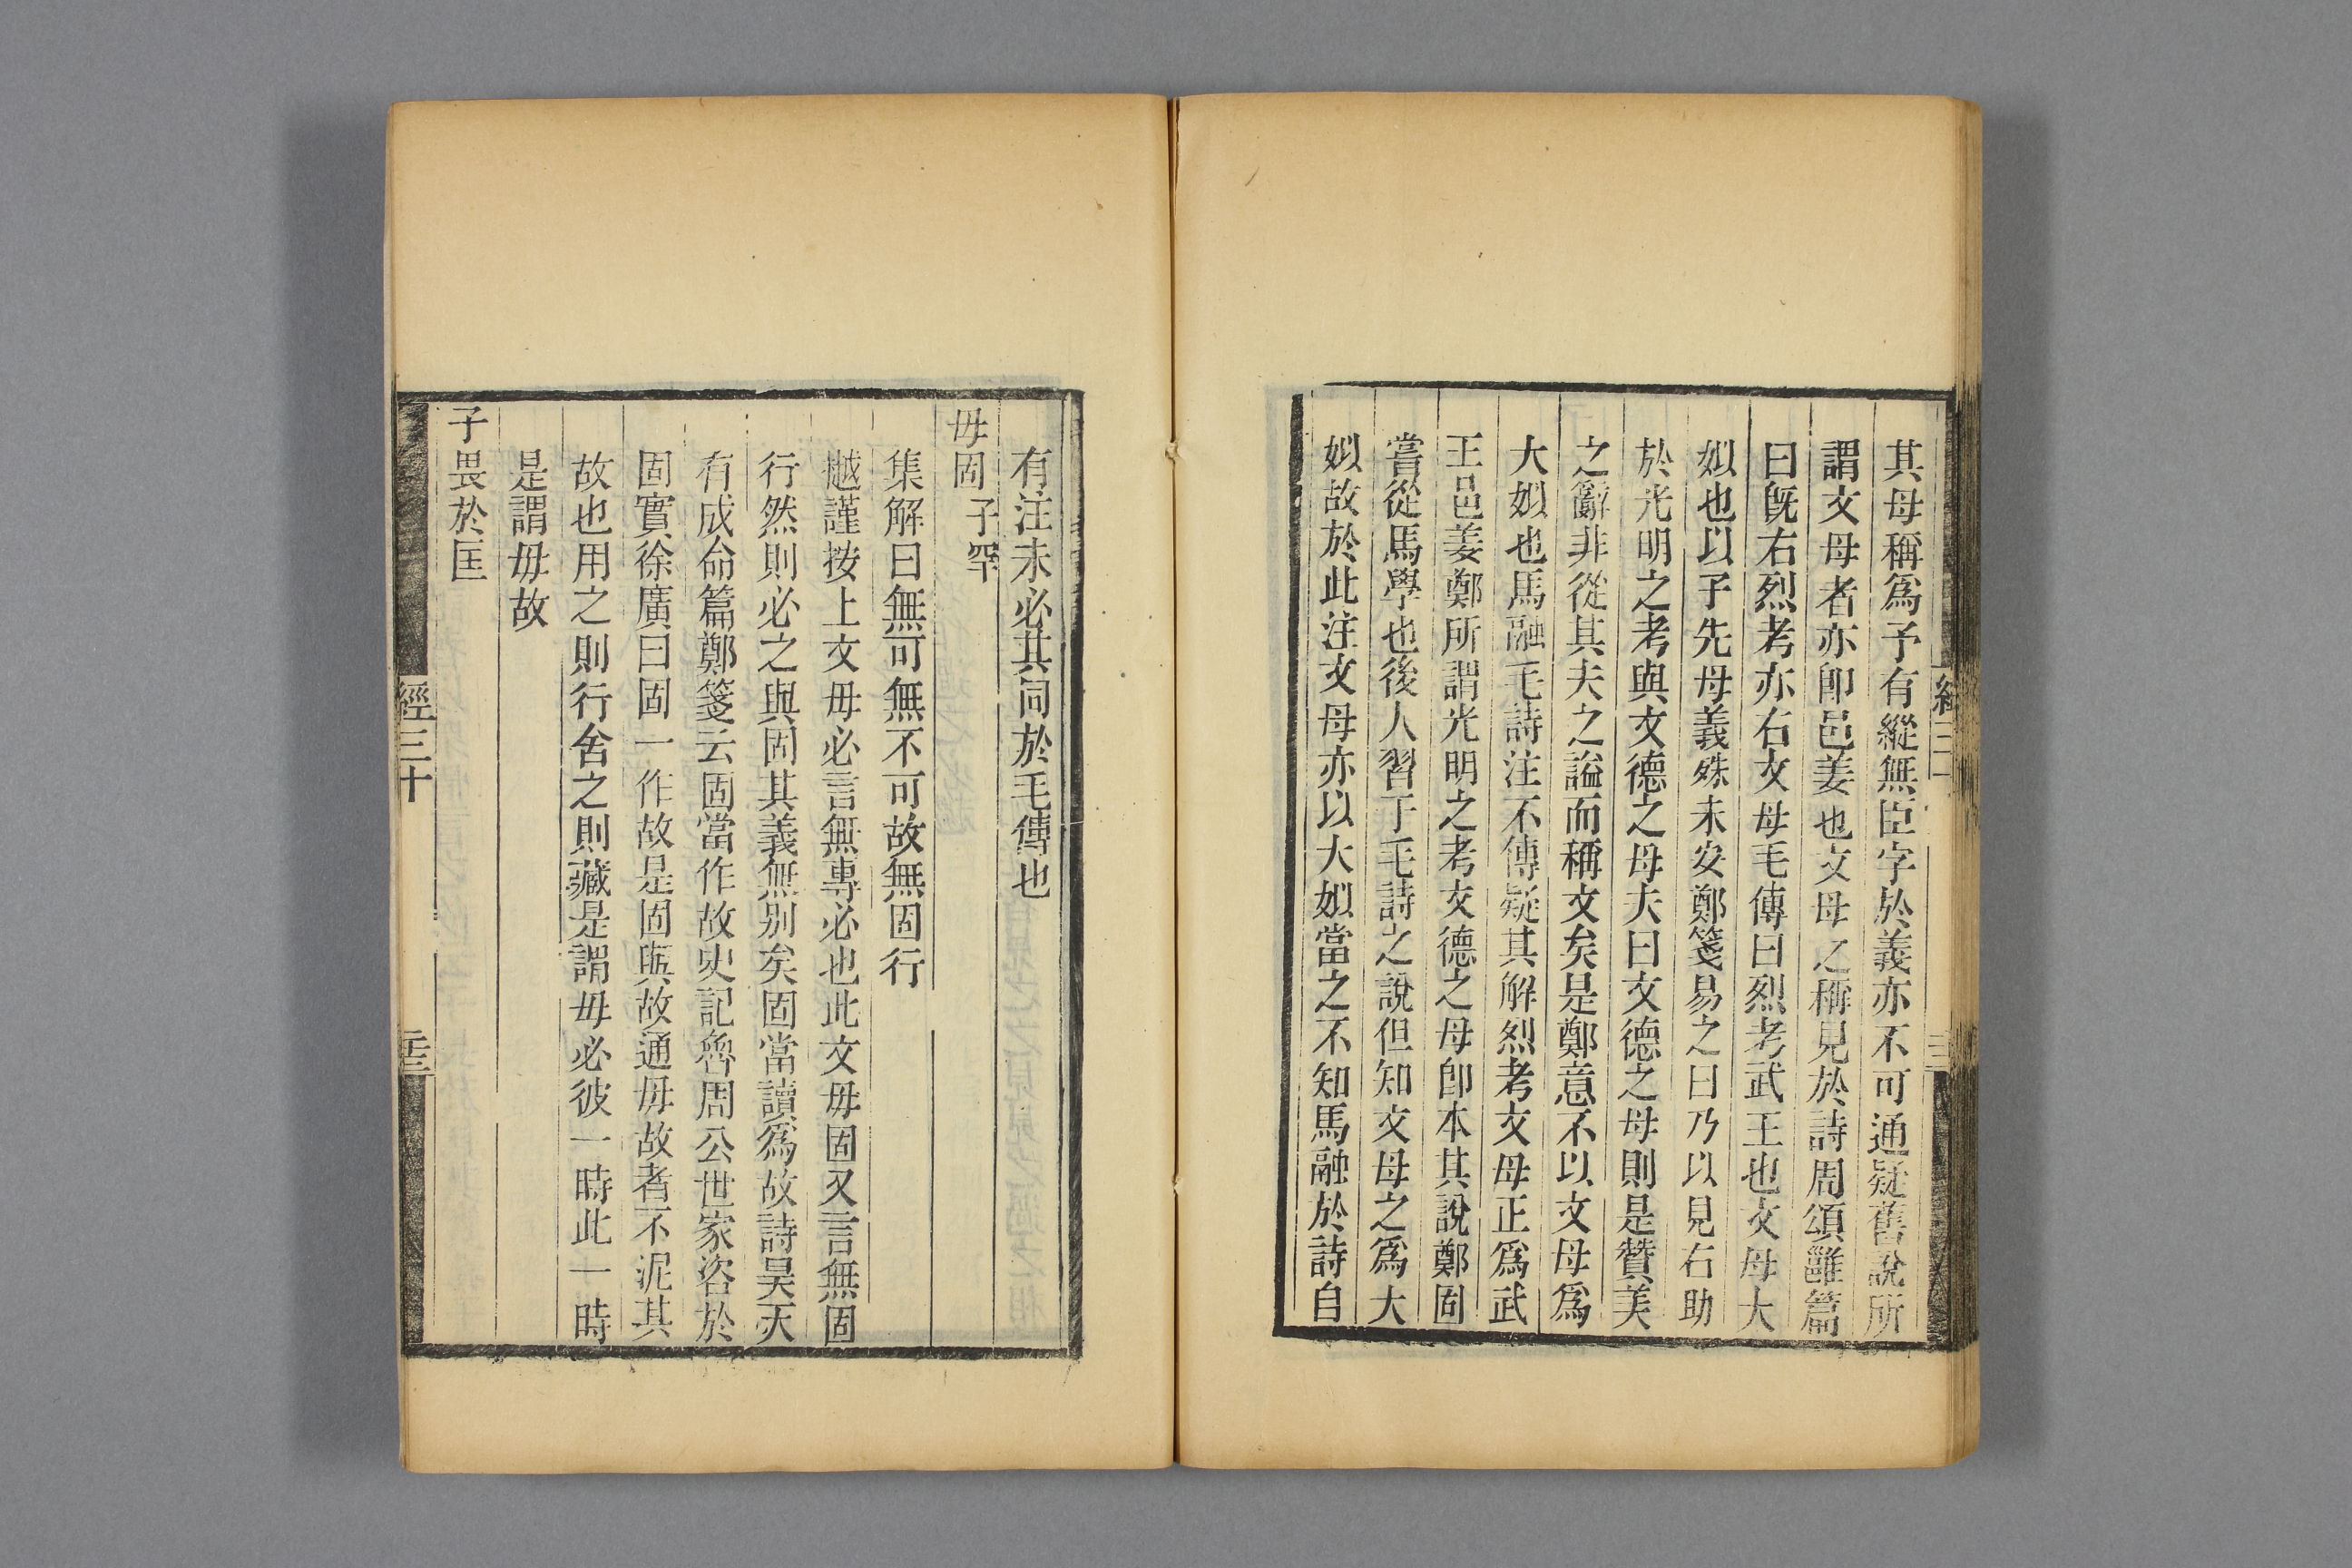 其母稱爲予有縱無臣字於義亦不可通疑舊說所
謂文母者亦卽邑姜也文母之稱見於詩周頌雝篇
曰旣右烈考亦右文母毛傳曰烈考武王也文母大
姒也以子先母義殊未安鄭箋易之曰乃以見右助
於光明之考與文德之母夫曰文德之母則是贊美
之辭非從其夫之謚而稱文矣是鄭意不以文母爲
大姒也馬融毛詩注不傳疑其解烈考文母正爲武
王邑姜鄭所謂光明之考文德之母卽本其說鄭固
嘗從馬學也後人習于毛詩之說但知文母之爲大
姒故於此注文母亦以大姒當之不知馬融於詩自
有注未必其同於毛傳也
毋固 子罕
集解曰無可無不可故無固行
樾謹按上文毋必言無專必也此文毋固又言無固
行然則必之與固其義無別矣固當讀爲故詩昊天
有成命篇鄭箋云固當作故史記魯周公世家咨於
固實徐廣曰固一作故是固與故通毋故者不泥其
故也用之則行舍之則藏是謂毋必彼一時此一時
是謂毋故
子畏於匡
經三十